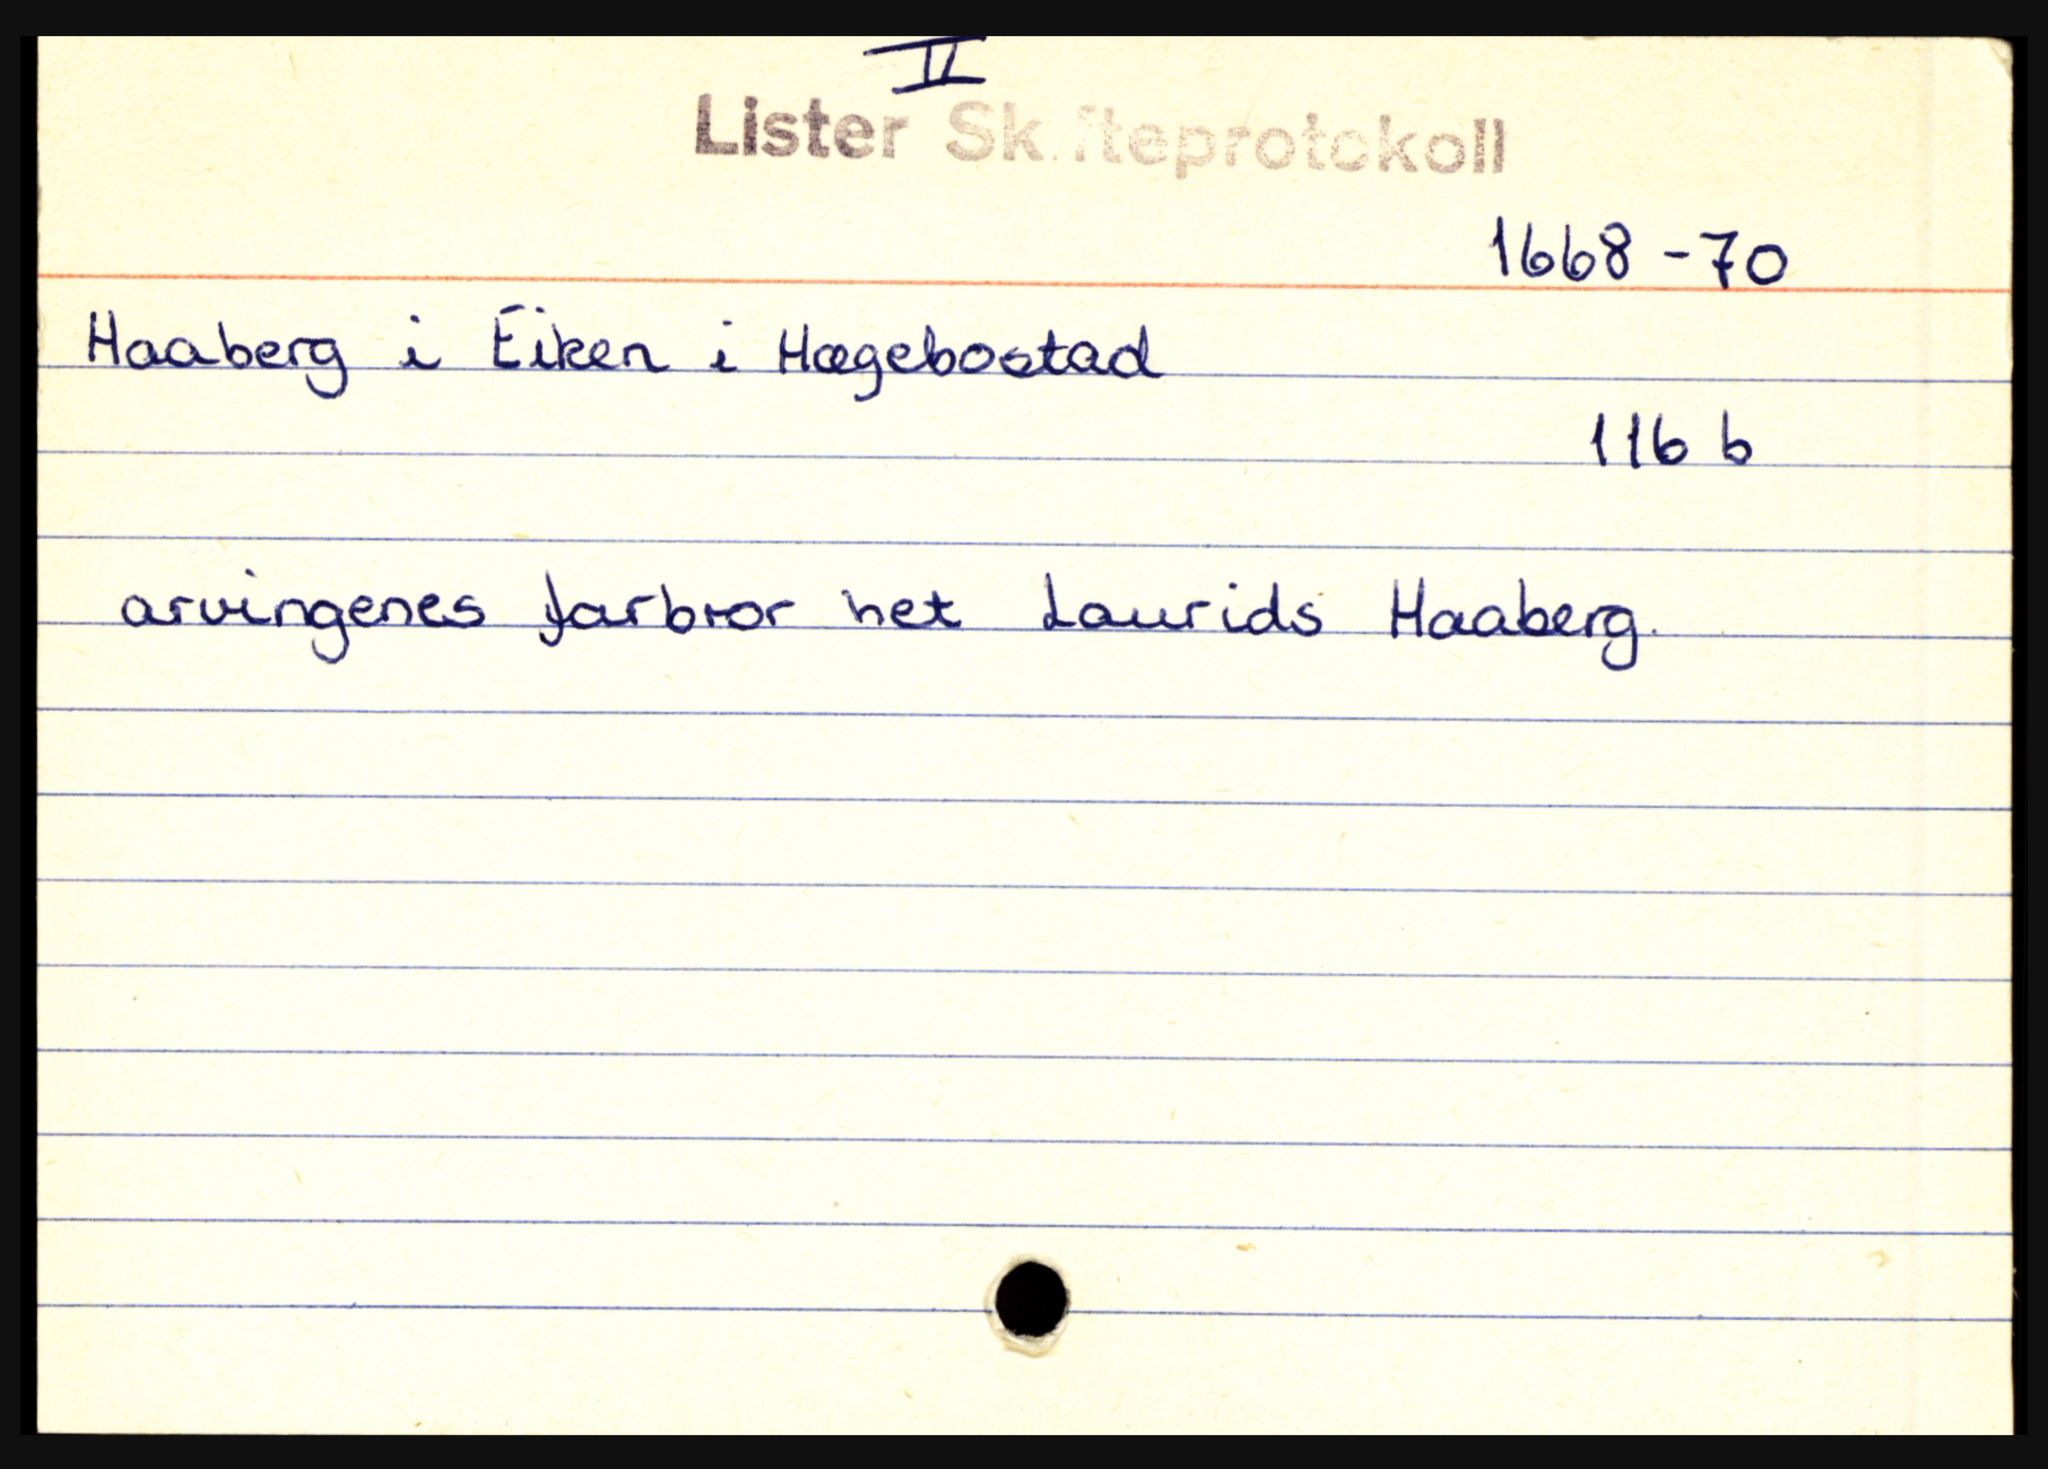 II
Lister Skifteprotokoll
1668-70
Haaberg i Eiken i Hægebostad
116 b
arvingenes farbror het Laurids Haaberg.